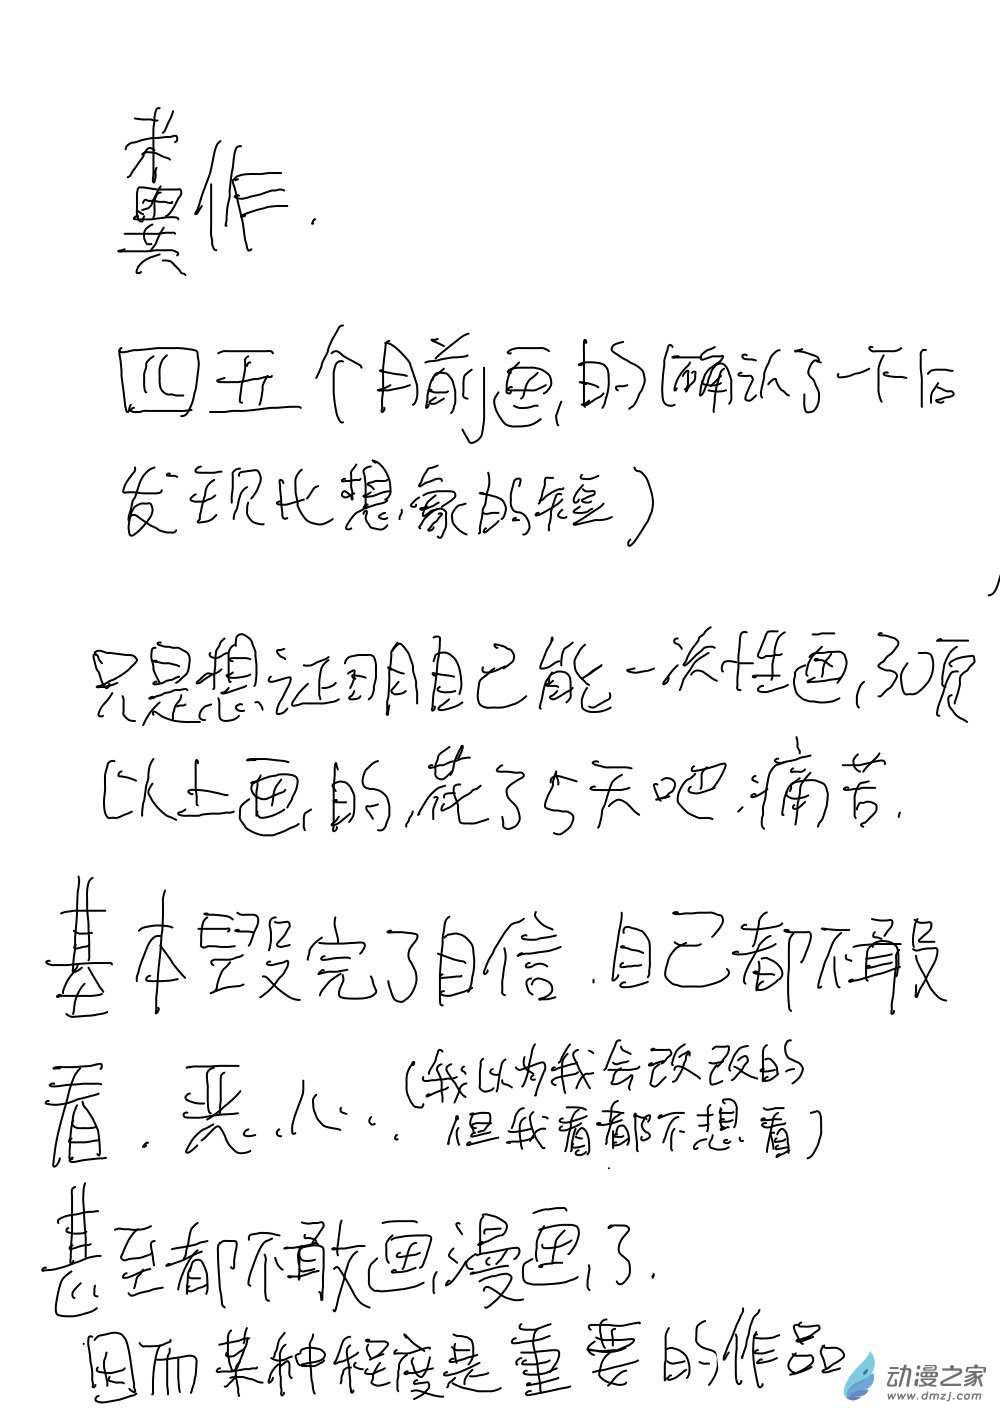 粪作.
四五个月前画的(确认了一下后
发现比想象的短)
只是想证明自己能一次性画30页
以上画的,花了5天吧.痛苦.
基本毁完了自信.自己都不敢
看.恶心..(我以为我会改改的
但我看都不想看)
甚至都不敢画漫画了.
因而某种程度是重要的作品
动漫之家
www.dmzj.com